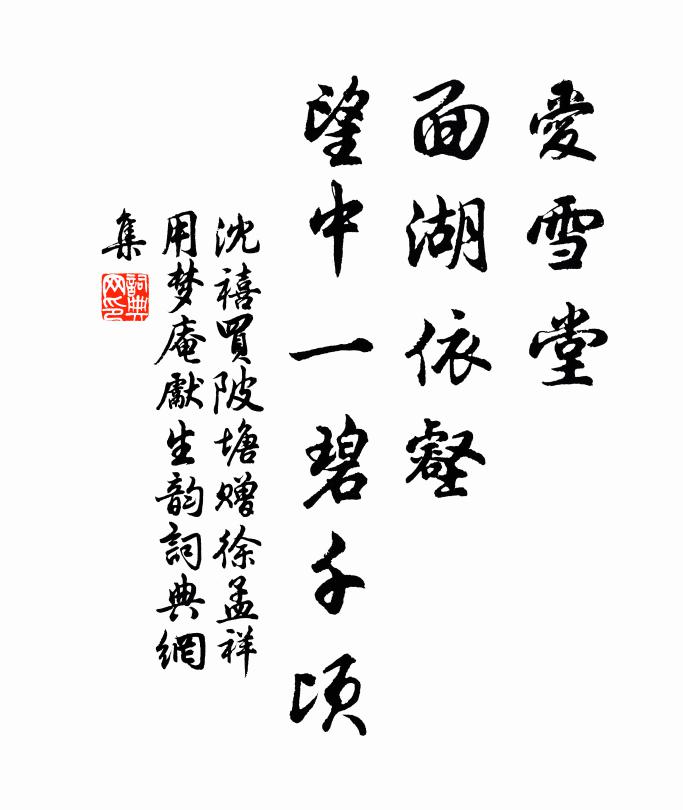 愛雪堂
面湖依壑
望中一碧千頃
沈禧買陂塘赠徐孟祥
用梦庵獻生韵詞典網
集
詞典
网印